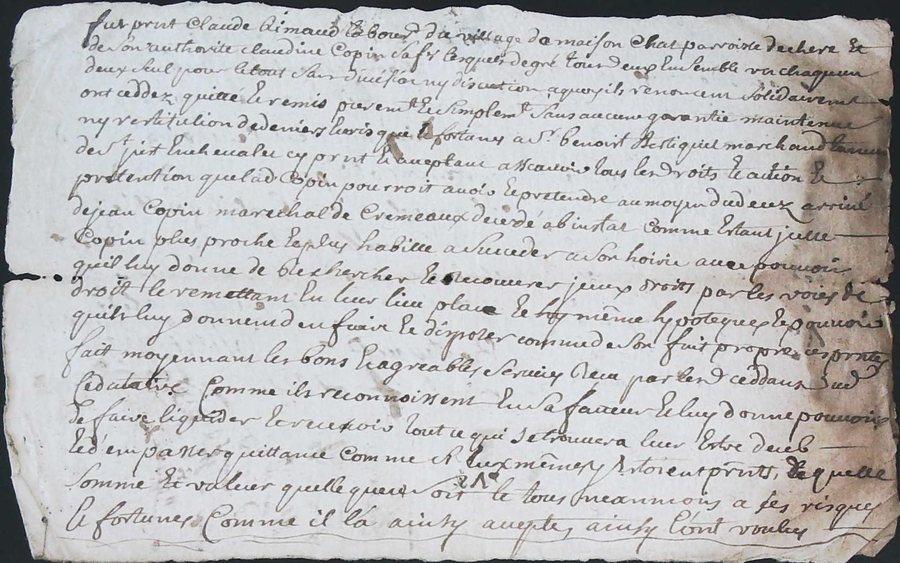 fut prnt Claude Rimaud labour du village de maison Chat parroisse de chere et
de son authorite claudine Copin sa fe lesquels de gré tous deux Ensemble un chaquun
deux seul pour le tout sans division ny discution a quoy ils renoncent solidairement
ont ceddez quitté et remis purem.t Et simplem.t sans aucune garantie maintenue
ny restitution de deniers La risque et fortunes a Sr. benoit marchand
de St just En chevalet cy prnt Et aceptant a scavoir tous les droits et action Et
pretention que lad Copin pourroit avoir Et pretendre au moyen du decez arrivé
de jean Copin marechal de Cremeaux decedé abintstat comme Estant jcelle
Copin plus proche Et plus habille a succeder a son hoirie avec pouvoir
quil luy donne de Rechercher Et recouvrer jceux droits par les voies de
droit le remettant En leur lieu place Et même hypoteques Et pouvoir
quils luy donnent den faire Et disposer comme de son fait propre ces prntes
fait moyennant les bons Et agreables services Receu par lesd ceddants dud
Cedataire Comme ils reconnoissent En sa faveur Et luy donne pouvoir
de faire liquider Et recevoir tout ce qui se trouvera leur Estre deub
Et d'em passer quittance comme Si Eux mêmes y Estoient prnts, de quelle
somme Et valeur quelle que soit le tous neanmoins a ses risques
Et fortunes Comme il la ainsy acepté ainsy l'ont voulus